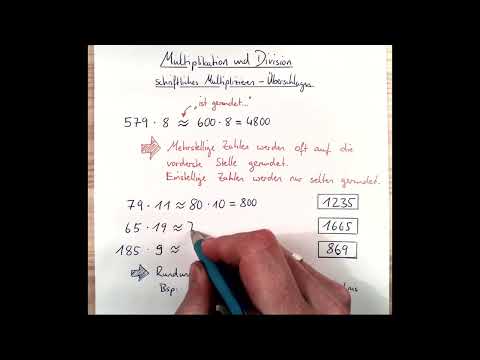 Multiplikation und Division
Schriftliches Multiplizieren - Überschlagen
"ist gerundet..."
579 · 8 ≈ 600 · 8 = 4800
Mehrstellige Zahlen werden oft auf die
vorderste Stelle gerundet.
Einstellige Zahlen werden nur selten gerundet.
79 · 11 ≈ 80 · 10 = 800 1235
65 · 19 ≈ 1665
185 · 9 ≈ 869
Rundun
Bsp: